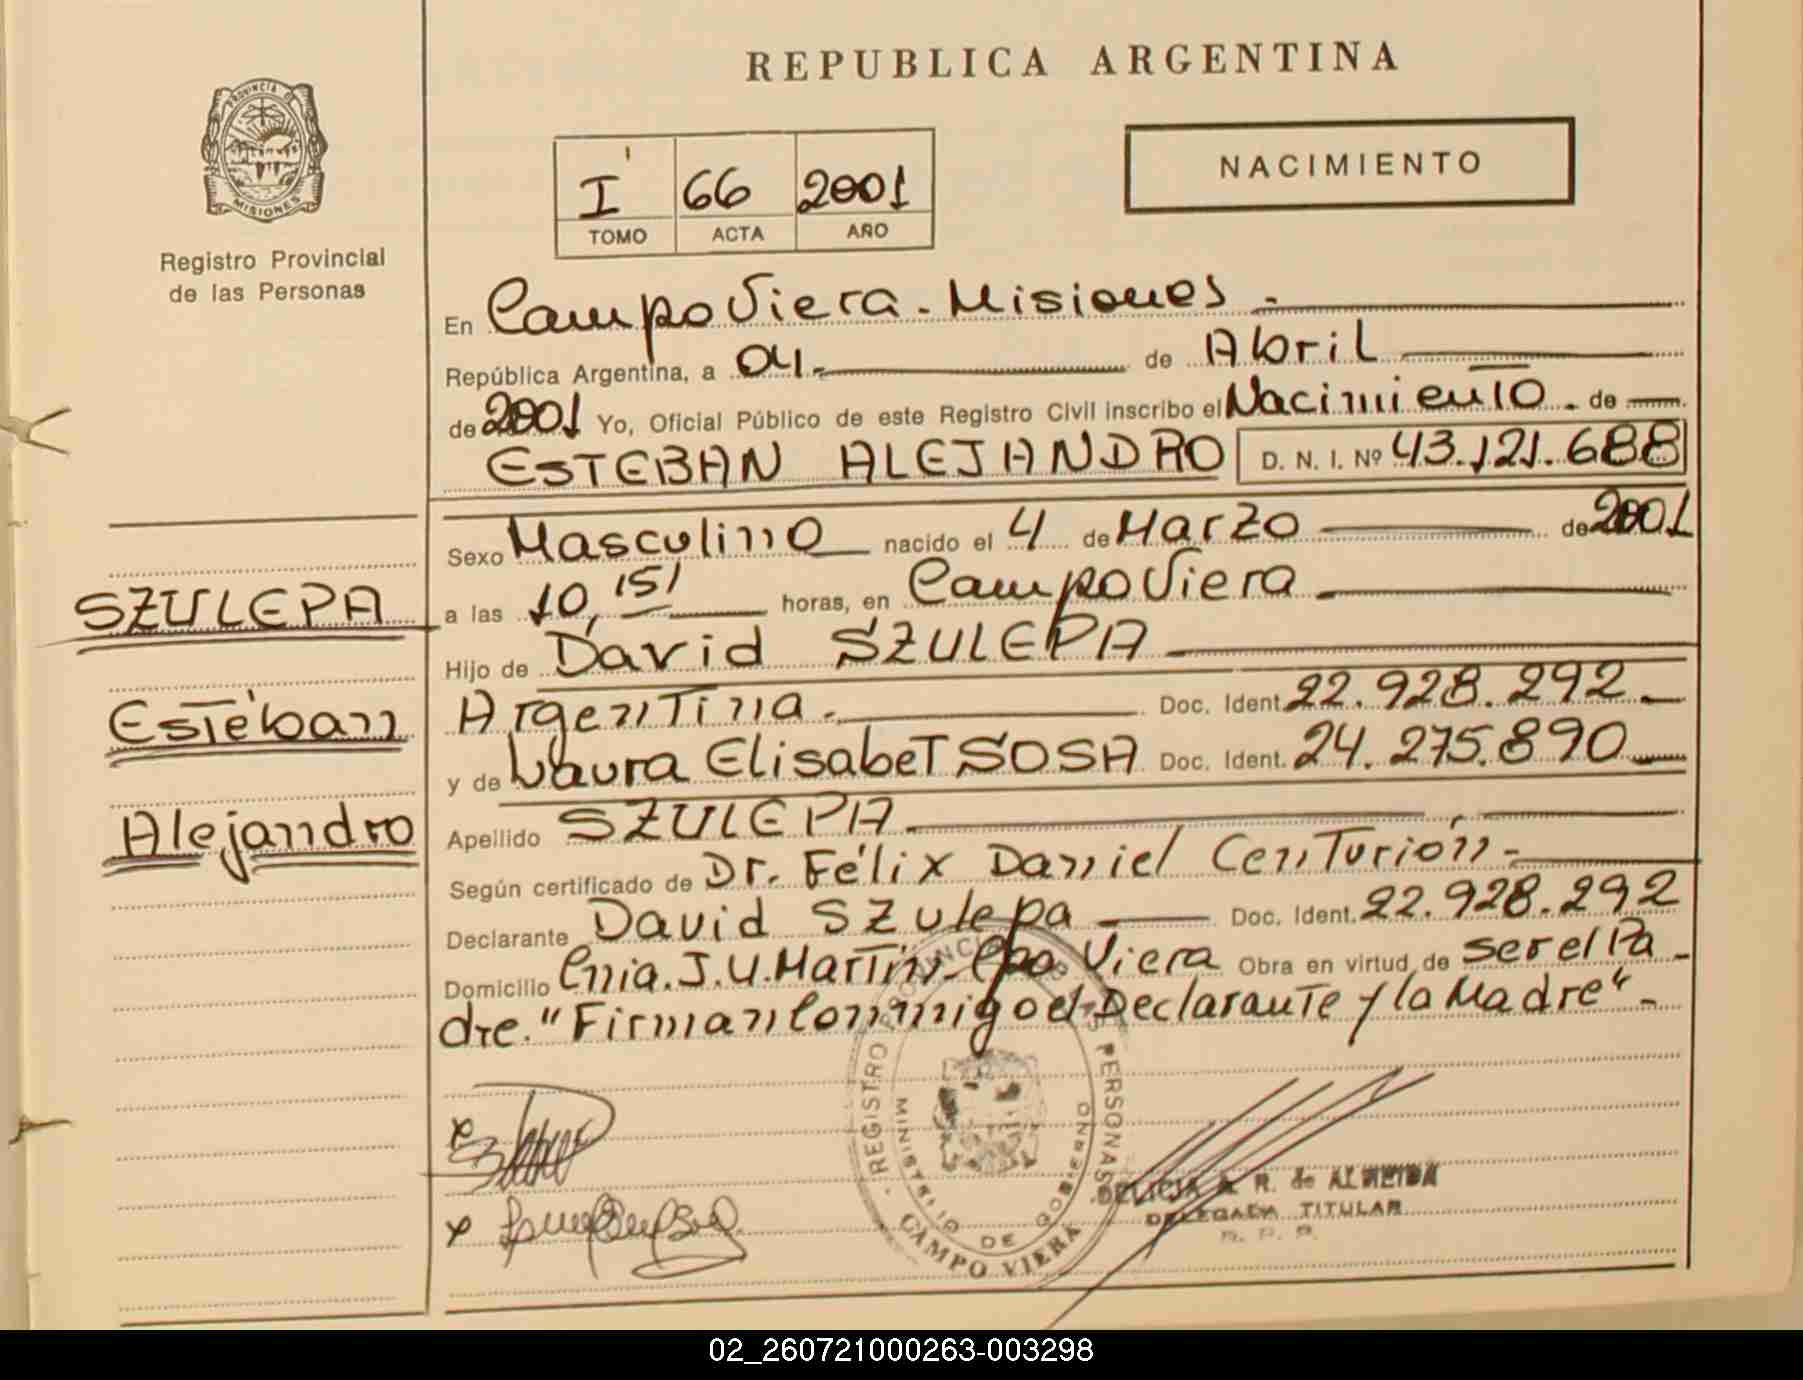 REPUBLICA ARGENTINA
PROVINCIA DE
MISIONES
Registro Provincial
de las Personas
NACIMIENTO
I 66 2001
TOMO ACTA AÑO
En Campo Viera - Misiones -
República Argentina, a 04.- de Abril
de 2001 Yo, Oficial Público de este Registro Civil inscribo el Nacimiento. de
ESTEBAN ALEJANDRO D. N. I. Nº 43.121.688
Sexo Masculino nacido el 4 de Marzo de 2001
a las 10,151 horas, en Campo Viera
Hijo de David SZULEPA
Argentina.- Doc. Ident. 22.928.292.-
y de Laura Elisabet SOSA Doc. Ident. 24.275.890
Apellido SZULEPA
Según certificado de Dr. Félix Daniel Centurión-
Declarante David Szulepa Doc. Ident. 22.928.292
Domicilio Cnia. J.U. Martin- Cpo Viera Obra en virtud de ser el Pa-
dre. "Firman conmigo el Declarante y la Madre"-
SZULEPA
Esteban
Alejandro
x
x
REGISTRO PROVINCIAL DE LAS PERSONAS
MINISTERIO DE GOBIERNO
CAMPO VIERA
DELICIA A. R. de ALMEIDA
DELEGADA TITULAR
R. P. P.
02_260721000263-003298